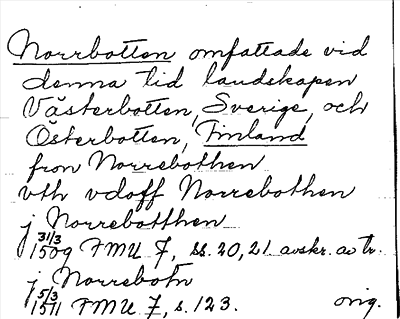 Norrbotten omfattade vid
denna tid landskapen
Västerbotten, Sverige, och
Österbotten, Finland
fron Norrebothen
vth vdoff Norrebothen
j Norrebotthen
31/3 1509 FMU 7, ss. 20, 21 avskr. av tr.
j Norrebotn
5/3 1511 FMU 7, s. 123. orig.